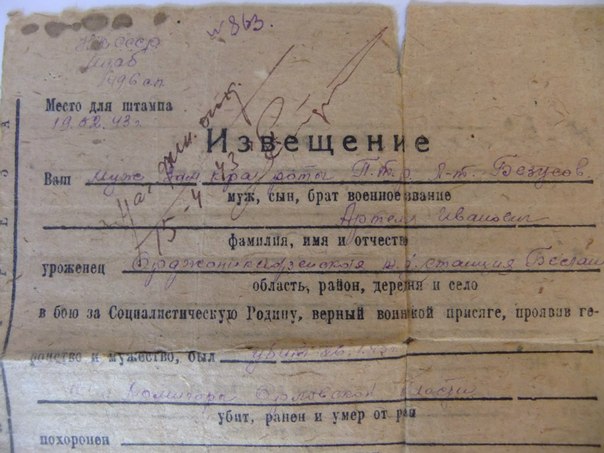 № 863.
НКО СССР
Штаб
Место для штампа
19.02.43г
Извещение
15-4 43
Ваш муж зам к-ра роты П.т.р. л-т. Безусов
муж, сын, брат военное звание
Артем Иванович
фамилия, имя и отчество
уроженец Орджоникидзевской ж.д. станция Беслан
область, район, деревня и село
в бою за Социалистическую Родину, верный воинской присяге, проявив ге-
ройство и мужество, был убит
Орловской области
убит, ранен и умер от ран
похоронен